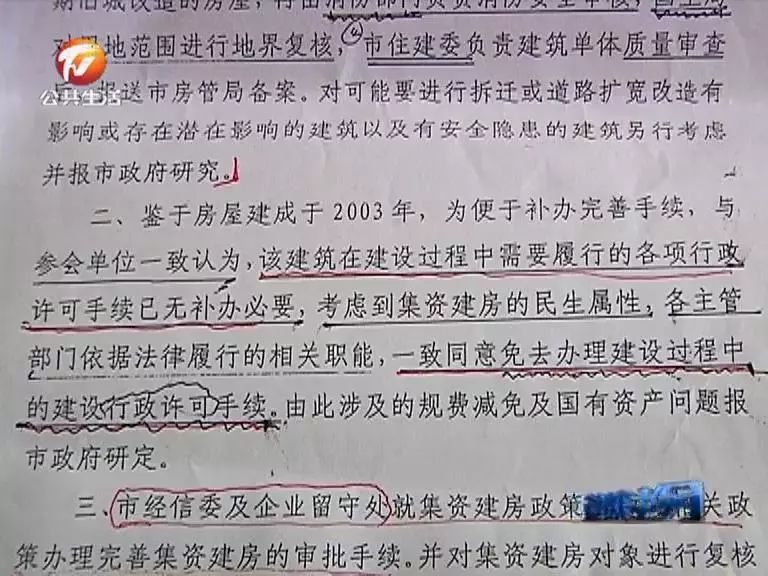 期旧城改造的房屋,再由消防部门负责消防安全审核,国土局
对用地范围进行地界复核,④市住建委负责建筑单体质量审查
报送市房管局备案。对可能要进行拆迁或道路扩宽改造有
公共生活
影响或存在潜在影响的建筑以及有安全隐患的建筑另行考虑
并报市政府研究。
二、鉴于房屋建成于2003年,为便于补办完善手续,与
参会单位一致认为,该建筑在建设过程中需要履行的各项行政
许可手续已无补办必要,考虑到集资建房的民生属性,各主管
部门依据法律履行的相关职能,一致同意免去办理建设过程中
的建设行政许可手续。由此涉及的规费减免及国有资产问题报
市政府研定。
三、市经信委及企业留守处就集资建房政策 关政
策办理完善集资建房的审批手续。并对集资建房对象进行复核